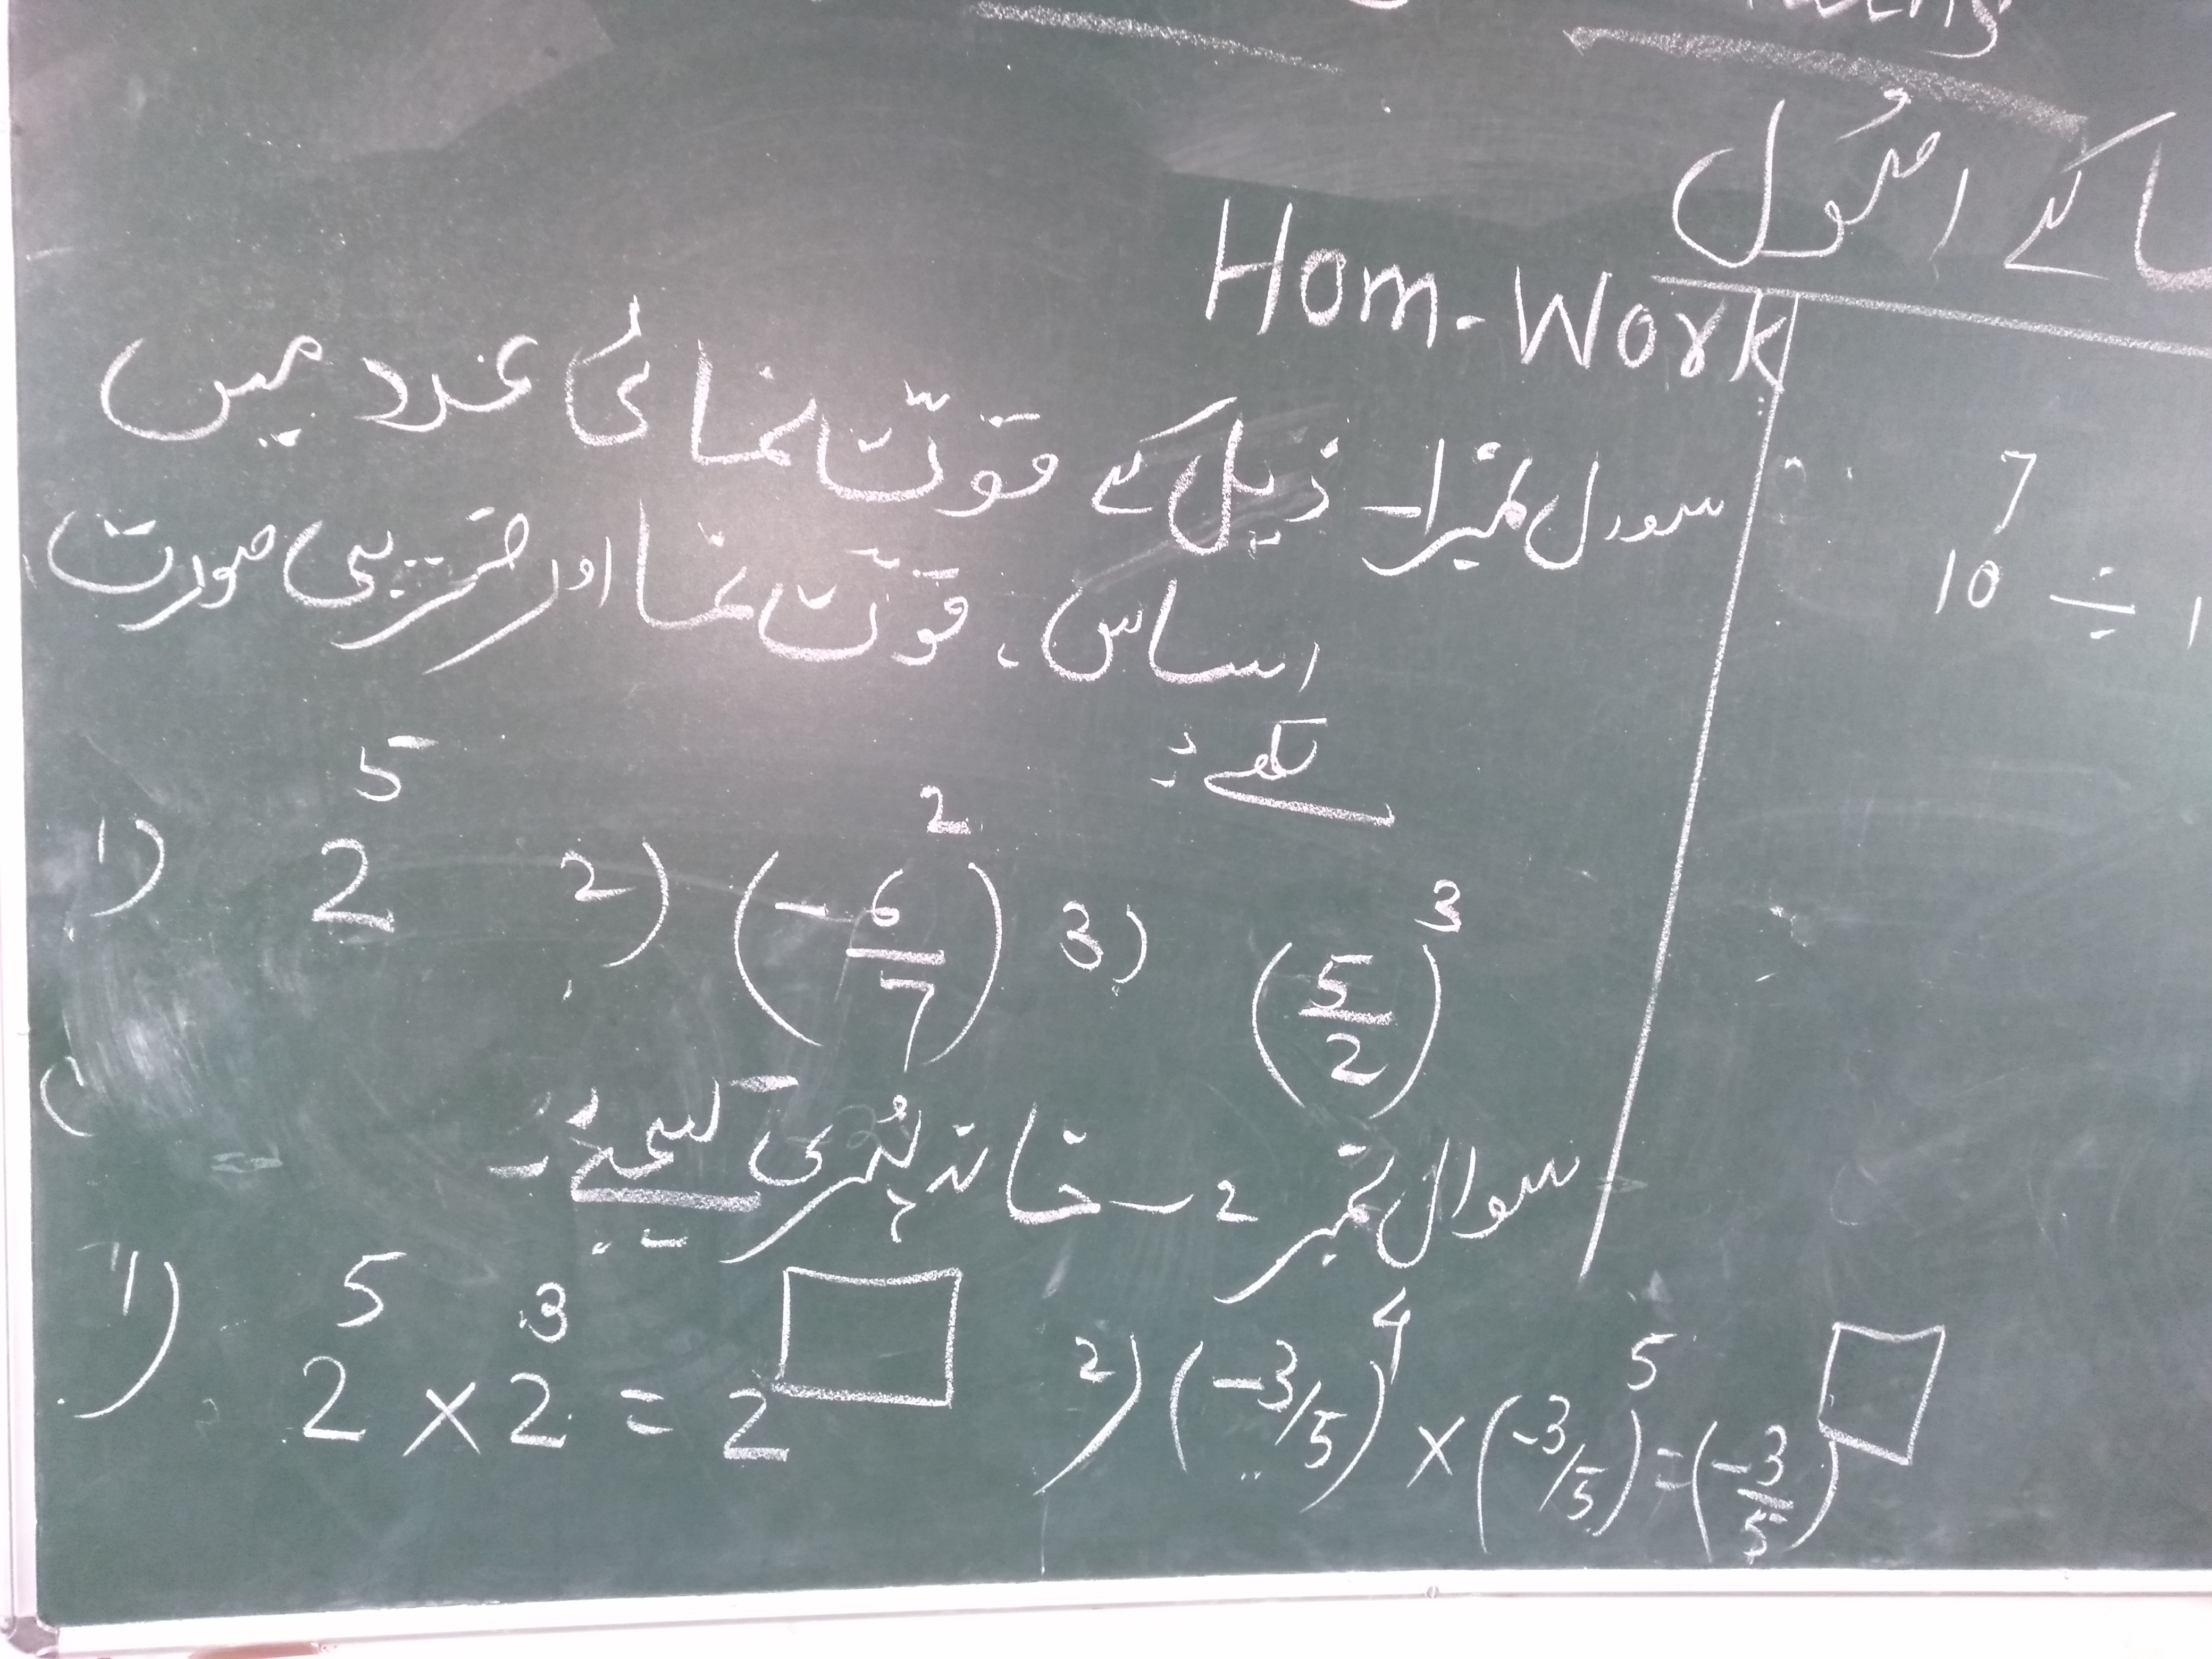 کے اصُول
Hom-Work
سورل نمبر1- ذیل کے قوّت نمائی عدد میں
اساس، قوّت نما اور ضربی صورت
لکھے:
1) 2⁵ 2) (-6/7)² 3) (5/2)³
سوال نمبر 2 - خانہ پُری کیجئے -
1) 2⁵ × 2³ = 2^□ 2) (-3/5)⁴ × (-3/5)⁵ = (-3/5)^□
7
10 ÷